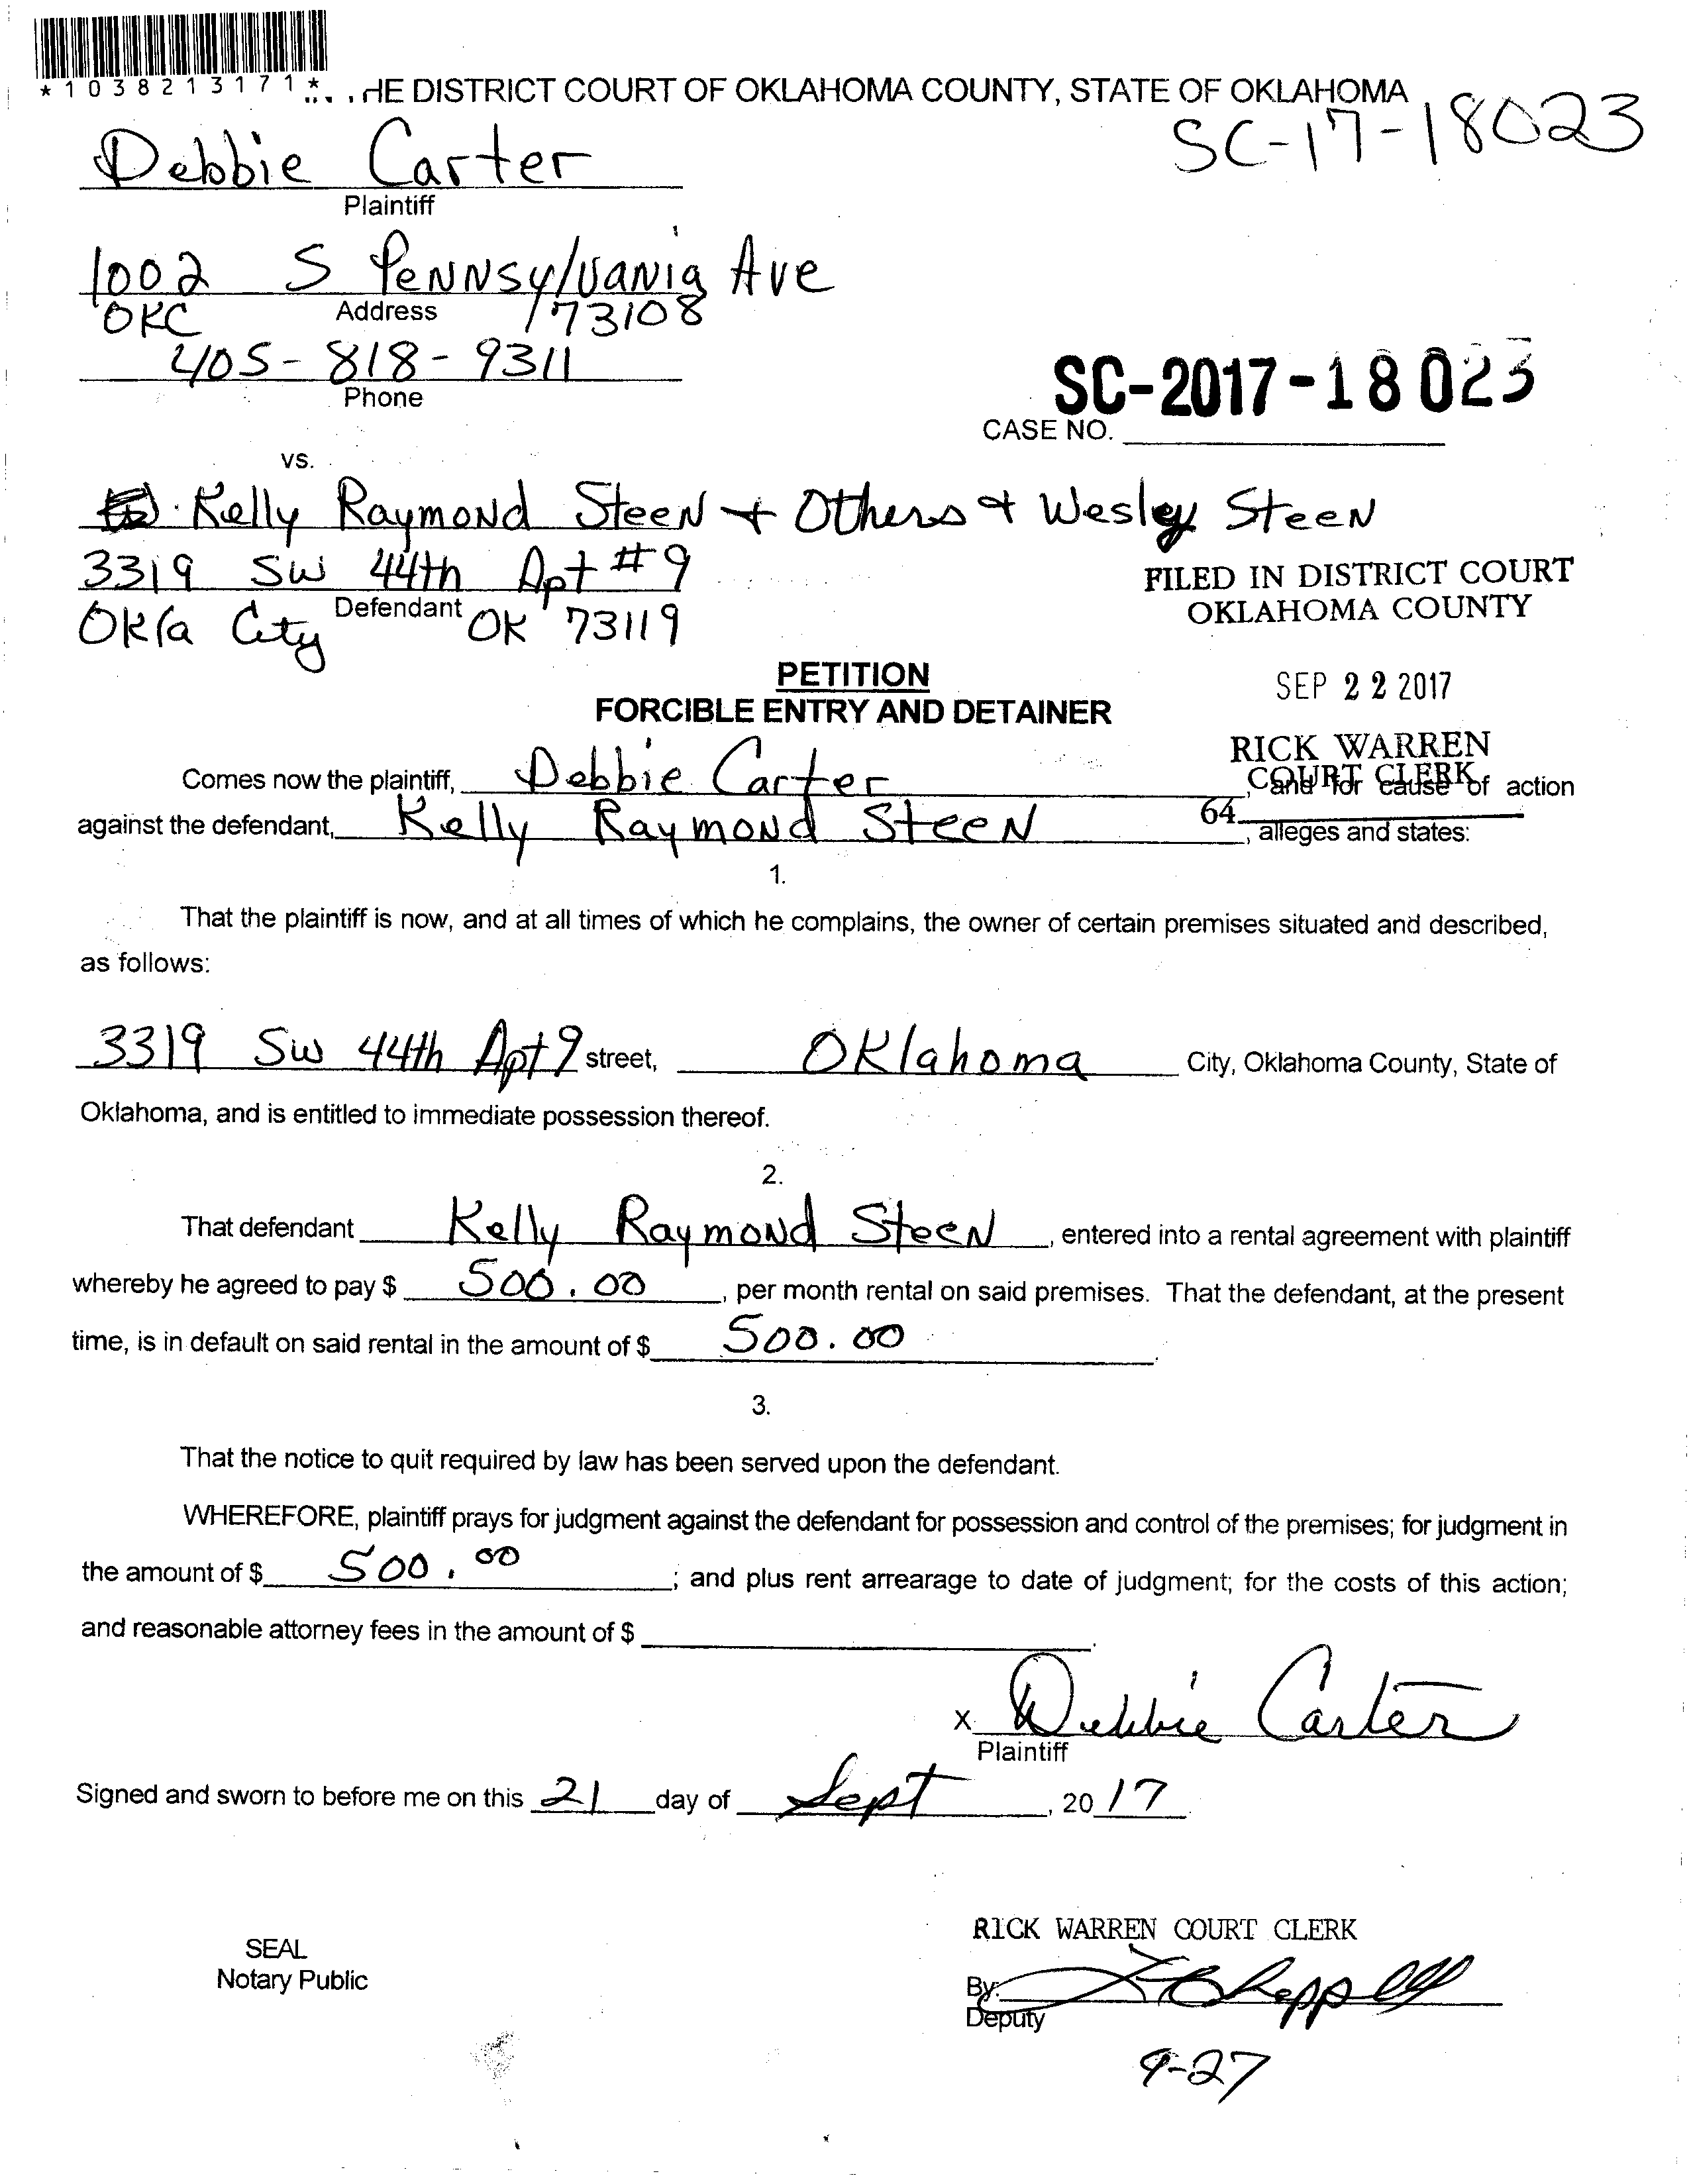 *1038213171*
HE DISTRICT COURT OF OKLAHOMA COUNTY, STATE OF OKLAHOMA
SC-17-18023
Debbie Carter
Plaintiff
1002 S Pennsylvania Ave
OKC Address 73108
405-818-9311
Phone
SC-2017-18023
CASE NO.
vs.
Kelly Raymond Steen + Others + Wesley Steen
3319 SW 44th Apt #9
Defendant
Okla City OK 73119
FILED IN DISTRICT COURT
OKLAHOMA COUNTY
SEP 22 2017
RICK WARREN
COURT CLERK
64
PETITION
FORCIBLE ENTRY AND DETAINER
Comes now the plaintiff, Debbie Carter, and for cause of action
against the defendant, Kelly Raymond Steen, alleges and states:
1.
That the plaintiff is now, and at all times of which he complains, the owner of certain premises situated and described,
as follows:
3319 SW 44th Apt 9 street, Oklahoma City, Oklahoma County, State of
Oklahoma, and is entitled to immediate possession thereof.
2.
That defendant Kelly Raymond Steen, entered into a rental agreement with plaintiff
whereby he agreed to pay $ 500.00, per month rental on said premises. That the defendant, at the present
time, is in default on said rental in the amount of $ 500.00.
3.
That the notice to quit required by law has been served upon the defendant.
WHEREFORE, plaintiff prays for judgment against the defendant for possession and control of the premises; for judgment in
the amount of $ 500.00; and plus rent arrearage to date of judgment; for the costs of this action;
and reasonable attorney fees in the amount of $ .
X Debbie Carter
Plaintiff
Signed and sworn to before me on this 21 day of Sept, 2017
RICK WARREN COURT CLERK
SEAL
Notary Public
By:
Deputy
9-27